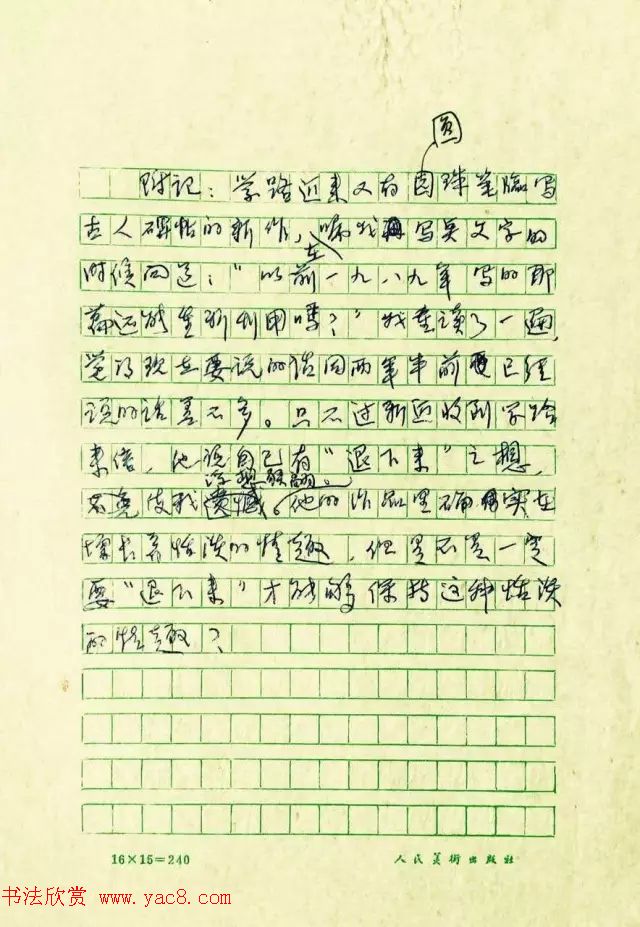 圆
附记：学路近来又有圆珠笔临写
古人碑帖的新作，嘱我写英文字的
在
时候回道："以前一九八九年写的那
篇还能重新利用吗？"我重读了一遍，
觉得现在要说的话同两年半前已经
说的话差不多。只不过新近收到学路
来信，他说自己有"退下来"之想，
不免使我。他的作品里确实在
增长着恬淡的情趣，但是不是一定
要"退下来"才能够保持这种恬淡
的情趣？
16×15=240
人民美術出版社
书法欣赏 www.yac8.com